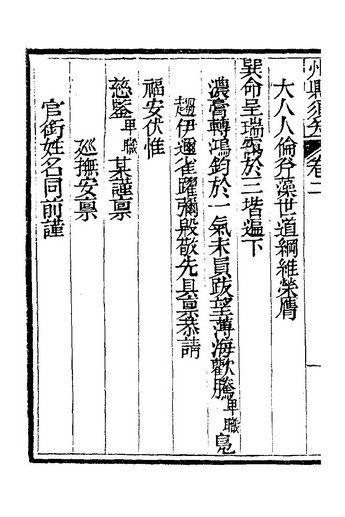 州縣須知 卷二
大人人倫斧藻世道綱維榮膺
巽命呈瑞靄於三堦遍下
濃膏轉鴻鈞於一氣末員跂望薄海歡騰卑職鳧
趨伊邇雀躍彌殷敬先具禀恭請
福安伏惟
慈鑒卑職某謹禀
廵撫安禀
官銜姓名同前謹